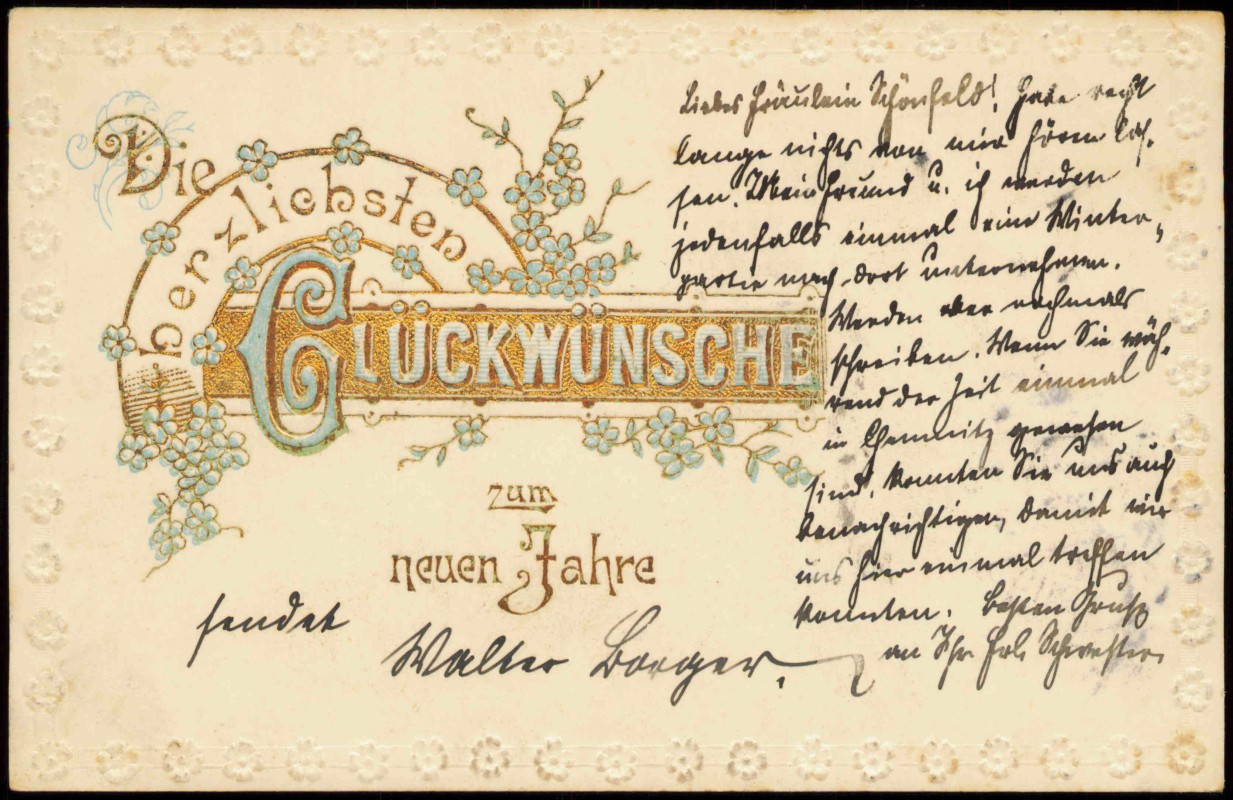 Die
herzlichsten
GLÜCKWÜNSCHE
zum
neuen Jahre
sendet
Walter Borger.
Liebes Fräulein Schönfeld! Habe recht
lange nichts von mir hören las-
sen. Mein Freund u. ich werden
jedenfalls einmal eine Winter-
partie nach dort unternehmen.
Werden aber nochmals
schreiben. Wenn Sie wäh-
rend der Zeit einmal
in Chemnitz gewesen
sind, konnten Sie uns auch
benachrichtigen, damit wir
uns hier einmal treffen
konnten. Besten Gruß
an Ihr Frl. Schwester.